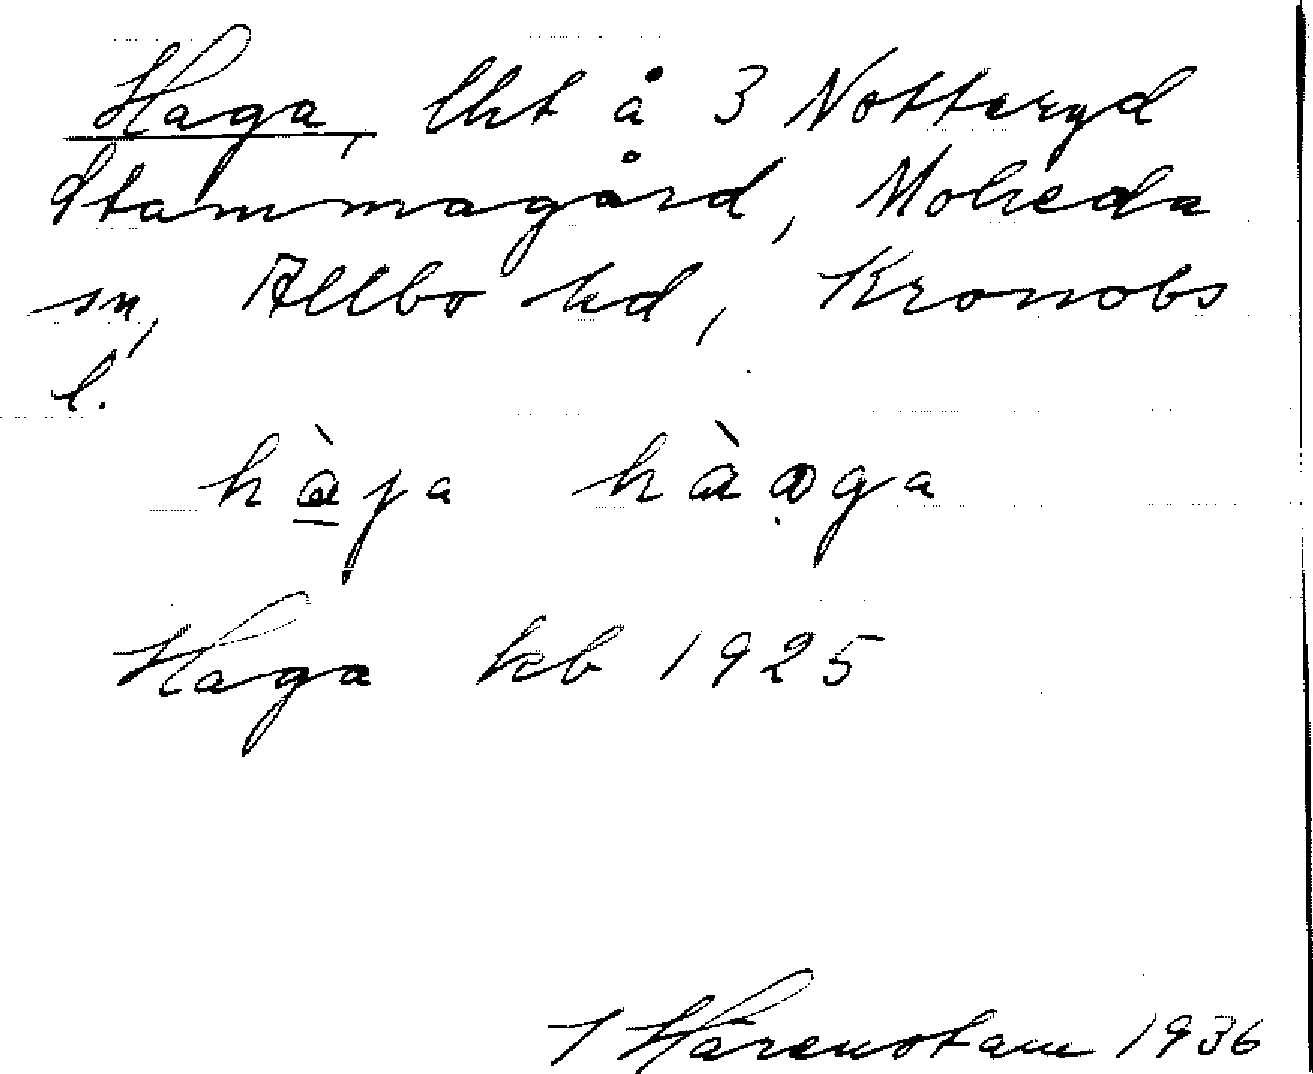 Haga, lht å 3 Notteryd
Stammagård, Moheda
sn, Allbo hd, Kronobs
l.
hàga hàaga
Haga kb 1925
T Härenstam 1936